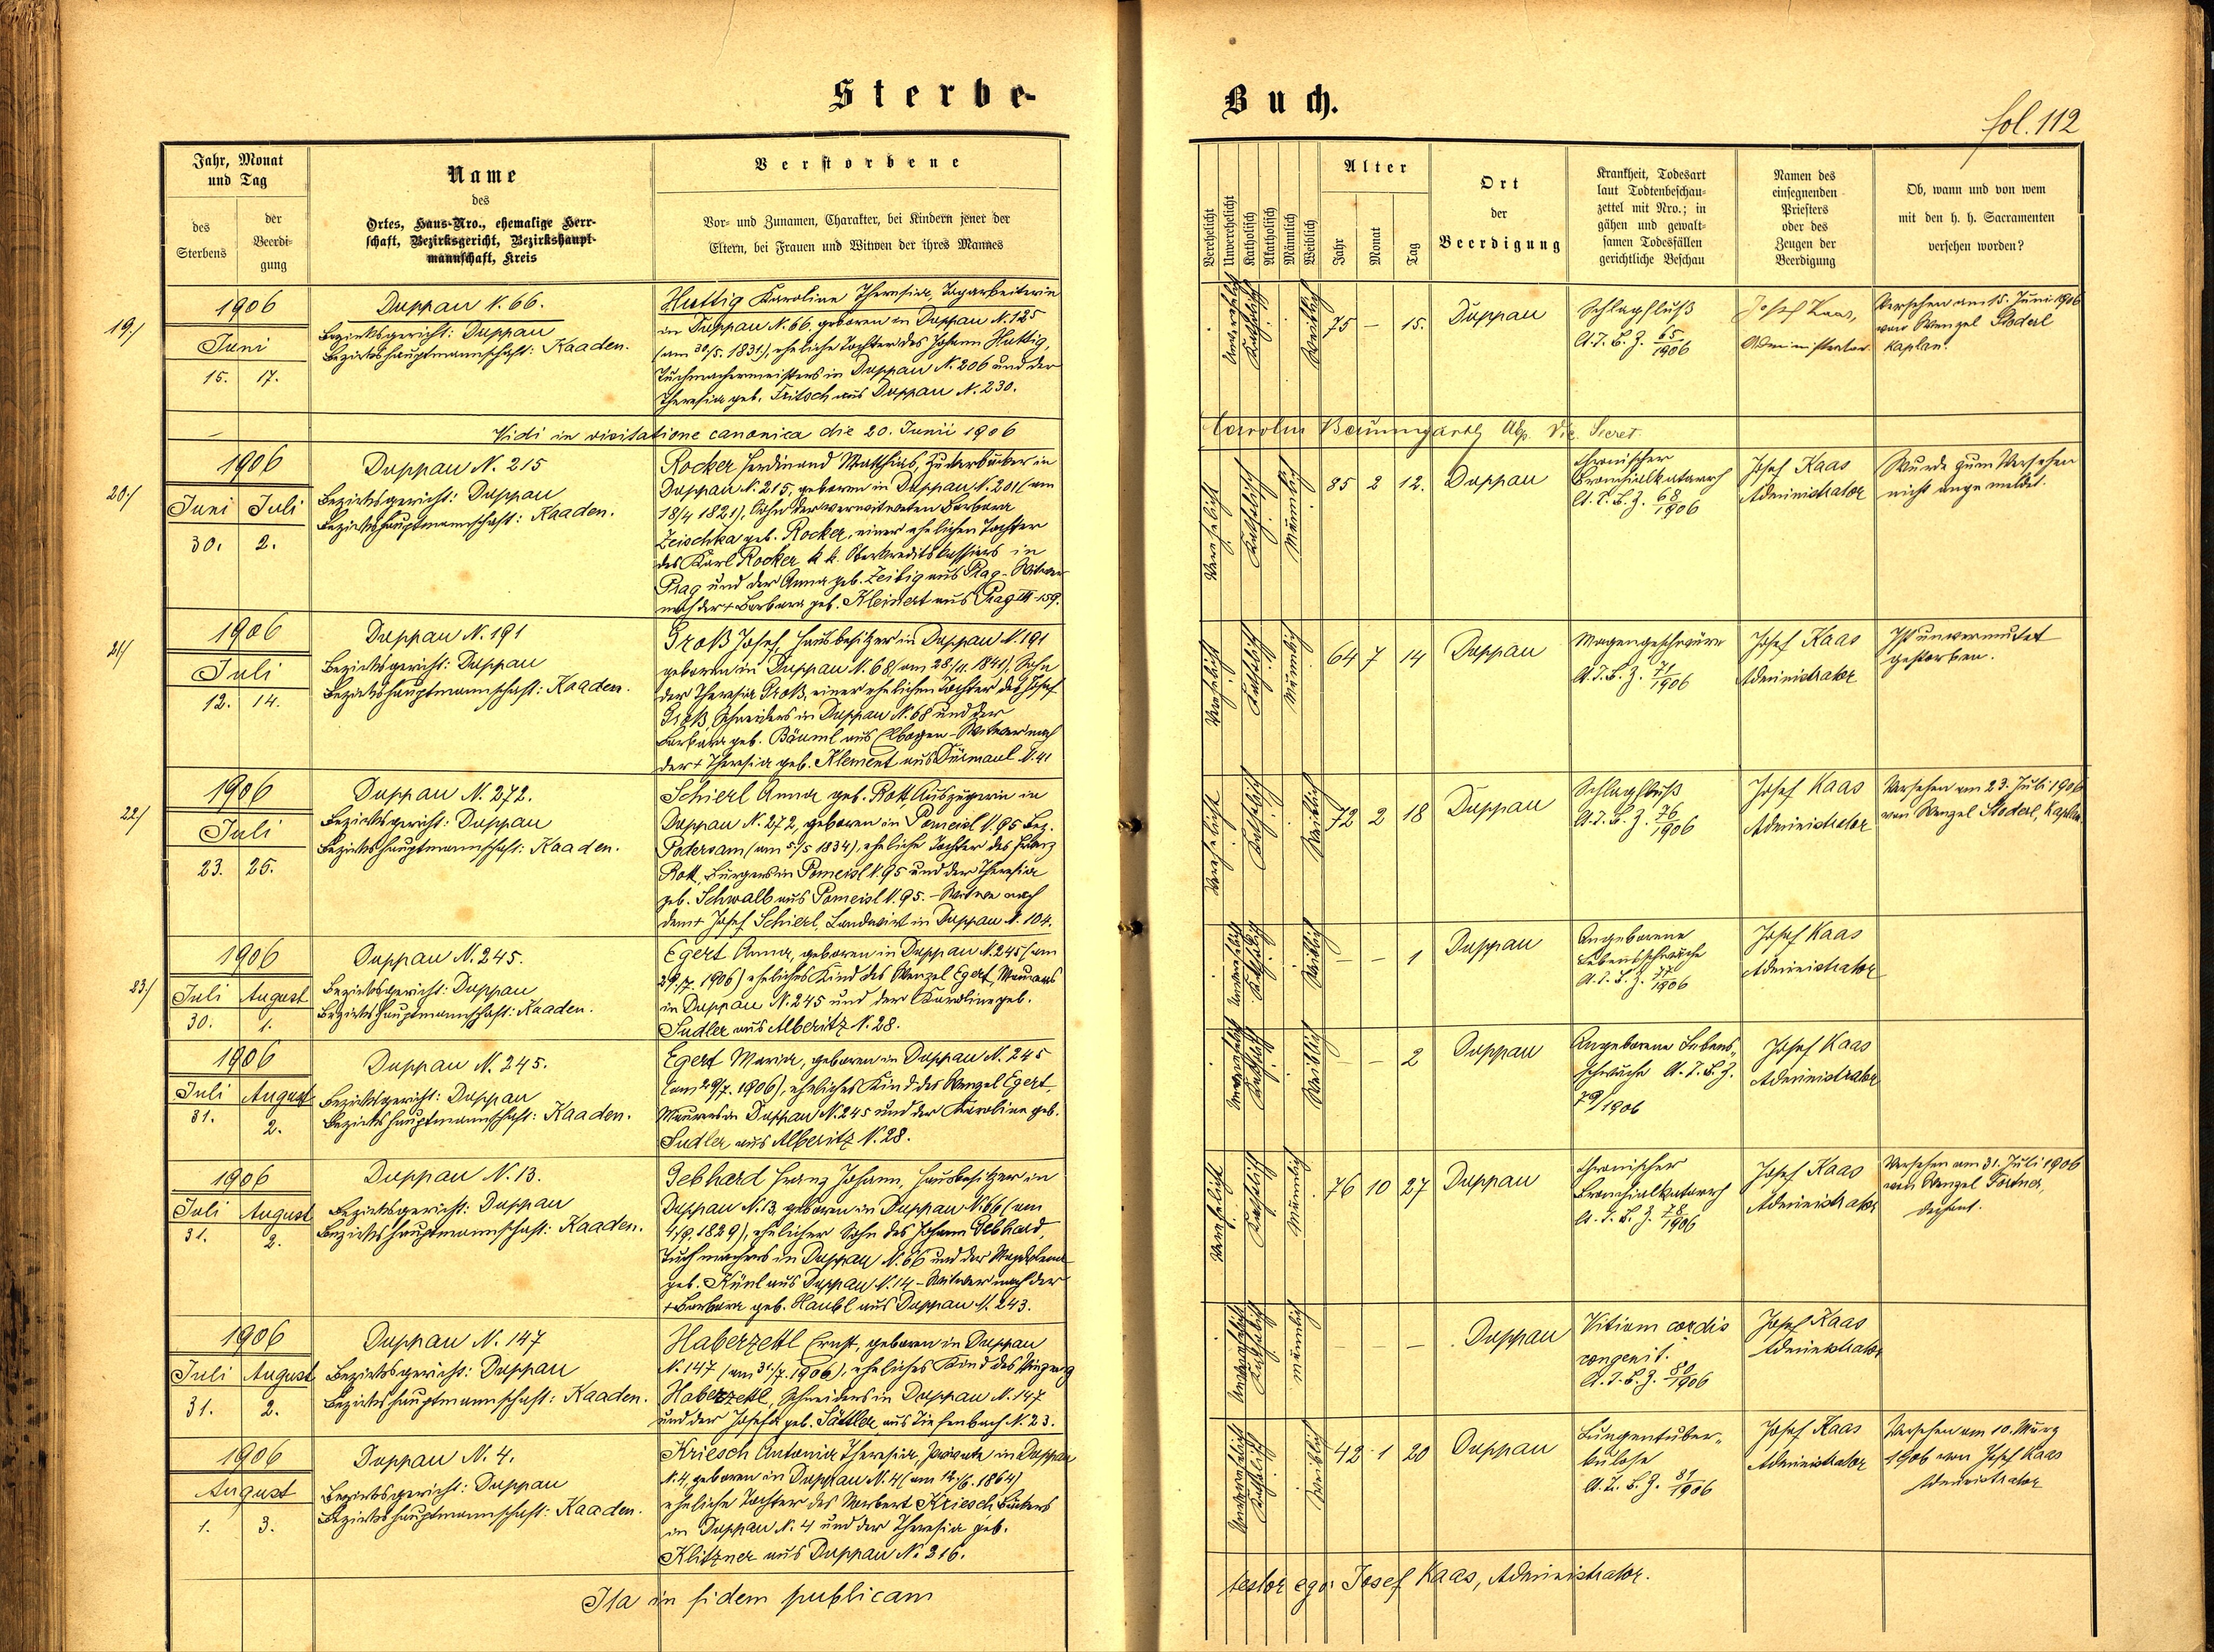 Sterbe-
Buch.
fol. 112
Jahr, Monat
und Tag
des
Sterbens
der
Beerdi-
gung
Name
des
Ortes, Haus-Nro., ehemalige Herr-
schaft, Bezirksgericht, Bezirkshaupt-
mannschaft, Kreis
Verstorbene
Vor- und Zunamen, Charakter, bei Kindern jener der
Eltern, bei Frauen und Witwen der ihres Mannes
Verehelicht
Unverehelicht
Katholisch
Akatholisch
Männlich
Weiblich
Alter
Jahr
Monat
Tag
Ort
der
Beerdigung
Krankheit, Todesart
laut Todtenbeschau-
zettel mit Nro.; in
gähen und gewalt-
samen Todesfällen
gerichtliche Beschau
Namen des
einsegnenden
Priesters
oder des
Zeugen der
Beerdigung
Ob, wann und von wem
mit den h. h. Sacramenten
versehen worden?
19./
1906
Juni
15. 17.
Duppau N. 66.
Bezirksgericht: Duppau
Bezirkshauptmannschaft: Kaaden.
Huttig Karoline Theresia, Tagarbeiterin
in Duppau N. 66, geboren in Duppau N. 125
(am 30./5. 1831), eheliche Tochter des Johann Huttig,
Tuchmachermeisters in Duppau N. 206 und der
Theresia geb. Fritsch aus Duppau N. 230.
Unverehelicht Katholisch Weiblich
75 — 15. Duppau
Schlagfluß
A. T. B. Z. 65/1906
Josef Kaas,
Administrator
Versehen am 15. Juni 1906
von Wenzel Stoderl
Kaplan.
Vidi in visitatione canonica die 20. Junii 1906
Carolus Baumgartl Abp. Vic. Secret.
20./
1906
Juni Juli
30. 2.
Duppau N. 215
Bezirksgericht: Duppau
Bezirkshauptmannschaft: Kaaden.
Rocker Ferdinand Matthias, Zuckerbäcker in
Duppau N. 215, geboren in Duppau N. 201 (am
18/4 1821), Sohn der verwitweten Barbara
Zeischka geb. Rocker, einer ehelichen Tochter
des Karl Rocker k. k. Oberkreditskassiers in
Prag und der Anna geb. Zeibig aus Prag - Witwer
nach der + Barbara geb. Kleinert aus Prag III-159.
Verehelicht Katholisch Männlich
85 2 12. Duppau
Chronischer
Bronchialkatarrh
A. T. B. Z. 68/1906
Josef Kaas
Administrator
Wurde zum Versehen
nicht angemeldet.
21/
1906
Juli
12. 14.
Duppau N. 191
Bezirksgericht: Duppau
Bezirkshauptmannschaft: Kaaden.
Groß Josef, Hausbesitzer in Duppau N. 191
geboren in Duppau N. 68 (am 28./11. 1841), Sohn
der Theresia Groß, einer ehelichen Tochter des Josef
Groß Schneiders in Duppau N. 68 und der
Barbara geb. Bäuml aus Elbogen - Witwer nach
der + Theresia geb. Klement aus Dürmaul N. 41
Verehelicht Katholisch Männlich
64 7 14 Duppau
Magengeschwüre
A. T. B. Z. 71/1906
Josef Kaas
Administrator
Ist unvermutet
gestorben.
22/
1906
Juli
23. 25.
Duppau N. 272.
Bezirksgericht: Duppau
Bezirkshauptmannschaft: Kaaden.
Schierl Anna geb. Rott, Auszüglerin in
Duppau N. 272, geboren in Pomeisl N. 95 Bez.
Podersam (am 5./5 1834), eheliche Tochter des Franz
Rott, Bürgers in Pomeisl N. 95 und der Theresia
geb. Schwalb aus Pomeisl N. 95. - Witwe nach
dem + Josef Schierl, Landwirt in Duppau N. 104.
Verehelicht Katholisch Weiblich
72 2 18 Duppau
Schlagfluß
A. T. B. Z. 76/1906
Josef Kaas
Administrator
Versehen am 23. Juli 1906
von Wenzel Stoderl, Kaplan
23./
1906
Juli August
30. 1.
Duppau N. 245.
Bezirksgericht: Duppau
Bezirkshauptmannschaft: Kaaden.
Egert Anna, geboren in Duppau N. 245 (am
29./7. 1906) eheliches Kind des Wenzel Egert, Maurers
in Duppau N. 245 und der Karoline geb.
Sudler aus Alberitz N. 28.
Unverehelicht Katholisch Weiblich
— — 1 Duppau
Angeborene
Lebensschwäche
A. T. B. Z. 77/1906
Josef Kaas
Administrator
1906
Juli August
31. 2.
Duppau N. 245.
Bezirksgericht: Duppau
Bezirkshauptmannschaft: Kaaden.
Egert Maria, geboren in Duppau N. 245
(am 29/7. 1906), eheliches Kind des Wenzel Egert,
Maurers in Duppau N. 245 und der Karoline geb.
Sudler aus Alberitz N. 28.
Unverehelicht Katholisch Weiblich
— — 2 Duppau
Angeborene Lebens-
schwäche A. T. B. Z.
79/1906
Josef Kaas
Administrator
1906
Juli August
31. 2.
Duppau N. 13.
Bezirksgericht: Duppau
Bezirkshauptmannschaft: Kaaden.
Gebhard Franz Johann, Hausbesitzer in
Duppau N. 13, geboren in Duppau N. 66 (am
4/9. 1829), ehelicher Sohn des Johann Gebhard,
Tuchmachers in Duppau N. 66 und der Magdalena
geb. Künl aus Duppau N. 14 - Witwer nach der
+ Barbara geb. Haubl aus Duppau N. 243.
Verehelicht Katholisch Männlich
76 10 27 Duppau
Chronischer
Bronchialkatarrh
A. T. B. Z. 78/1906
Josef Kaas
Administrator
Versehen am 31. Juli 1906
von Wenzel Görtner,
Dechant.
1906
Juli August
31. 2.
Duppau N. 147
Bezirksgericht: Duppau
Bezirkshauptmannschaft: Kaaden.
Haberzettl Ernst, geboren in Duppau
N. 147 (am 31./7. 1906), eheliches Kind des Vinzenz
Haberzettl, Schneiders in Duppau N. 147
und der Josefa geb. Sättler aus Tiefenbach N. 23.
Unverehelicht Katholisch Männlich
— — — Duppau
Vitium cordis
congenit.
A. T. B. Z. 80/1906
Josef Kaas
Administrator
1906
August
1. 3.
Duppau N. 4.
Bezirksgericht: Duppau
Bezirkshauptmannschaft: Kaaden.
Kriesch Antonia Theresia, Private in Duppau
N. 4, geboren in Duppau N. 4 (am 12./6. 1864)
eheliche Tochter des Norbert Kriesch Bäckers
in Duppau N. 4 und der Theresia geb.
Klitzner aus Duppau N. 316.
Unverehelicht Katholisch Weiblich
42 1 20 Duppau
Lungentuber-
kulose
A. T. B. Z. 81/1906
Josef Kaas
Administrator
Versehen am 10. März
1906 von Josef Kaas
Administrator
Ita in fidem publicam
testor ego: Josef Kaas, Administrator.